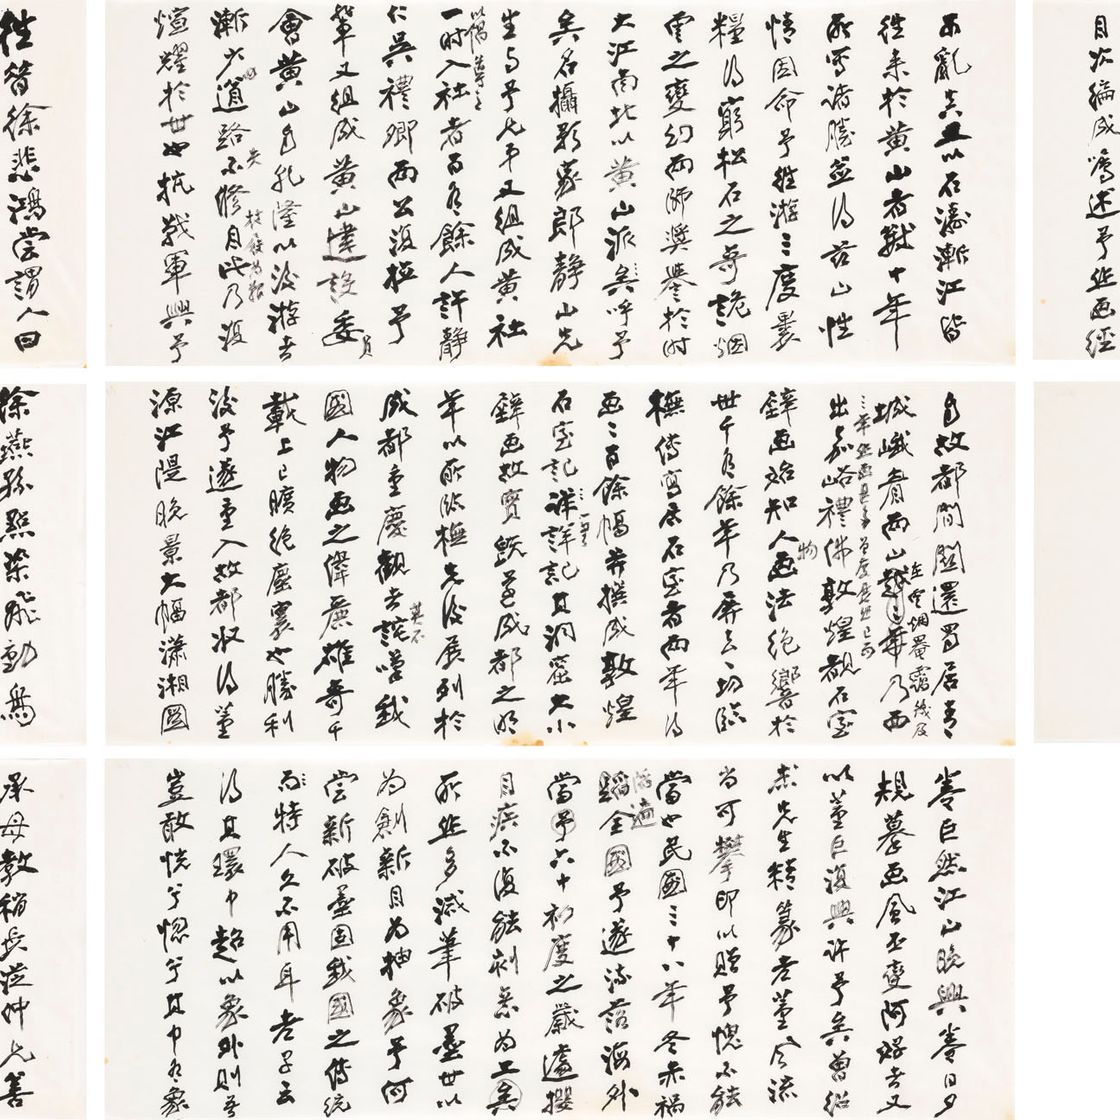 目次編成嘱述予作画經
而亂真且以石濤漸江皆
往来於黄山者數十年
所寫諸勝並得茲山性
情因命予經游三度裹
糧得窮松石之奇詭烟
雲之變幻兩師奬譽於時
大江南北以黄山派矣呼予
矣名攝影家郎静山先
生与予兄弟又組成黄社
以倡導之
一時入社者百有餘人許静
仁吳禮卿兩公復
輩又組成黄山建設委員
會黄山自以後游者
漸少道路不修目此乃復
煊耀於世也抗戰軍興予
往昔徐悲鴻嘗謂人曰
自故都間關還蜀居青
城峨眉兩山越乃西
出嘉峪禮佛敦煌觀石室
辟画始知人物画法絶響於
世千有餘年乃屏去一切臨
橅傳寫居石室者兩年得
画二百餘幅并撰成敦煌
石室記詳記其洞窟大小
辟画故實既還成都之明
年以所作橅先後展列於
成都重慶觀者詫嘆我
國人物画之偉麗雄奇千
載上已曠絶塵寰也勝利
後予遂重入故都收得董
源江隄晚景大幅瀟湘圖
徐燕孫點染飛動為
卷巨然江山晚興卷日夕
規摹画風丕變阿好者又
以董巨復興許予矣曾紹
杰先生精篆老董風流
尚可攀即以贈予愧不能
當也民國三十八年冬赤禍
蹈全國予遂流落海外
當予六十初度之歲遽攖
目疾不復能刻意為工矣
所作多減筆破墨世以
為創新目為抽象予何
嘗新破墨固我國之傳統
而特人久不用耳老子云
得其環中超以象外則吾
豈敢恍兮惚兮其中有象
承母教稍長從仲兄善